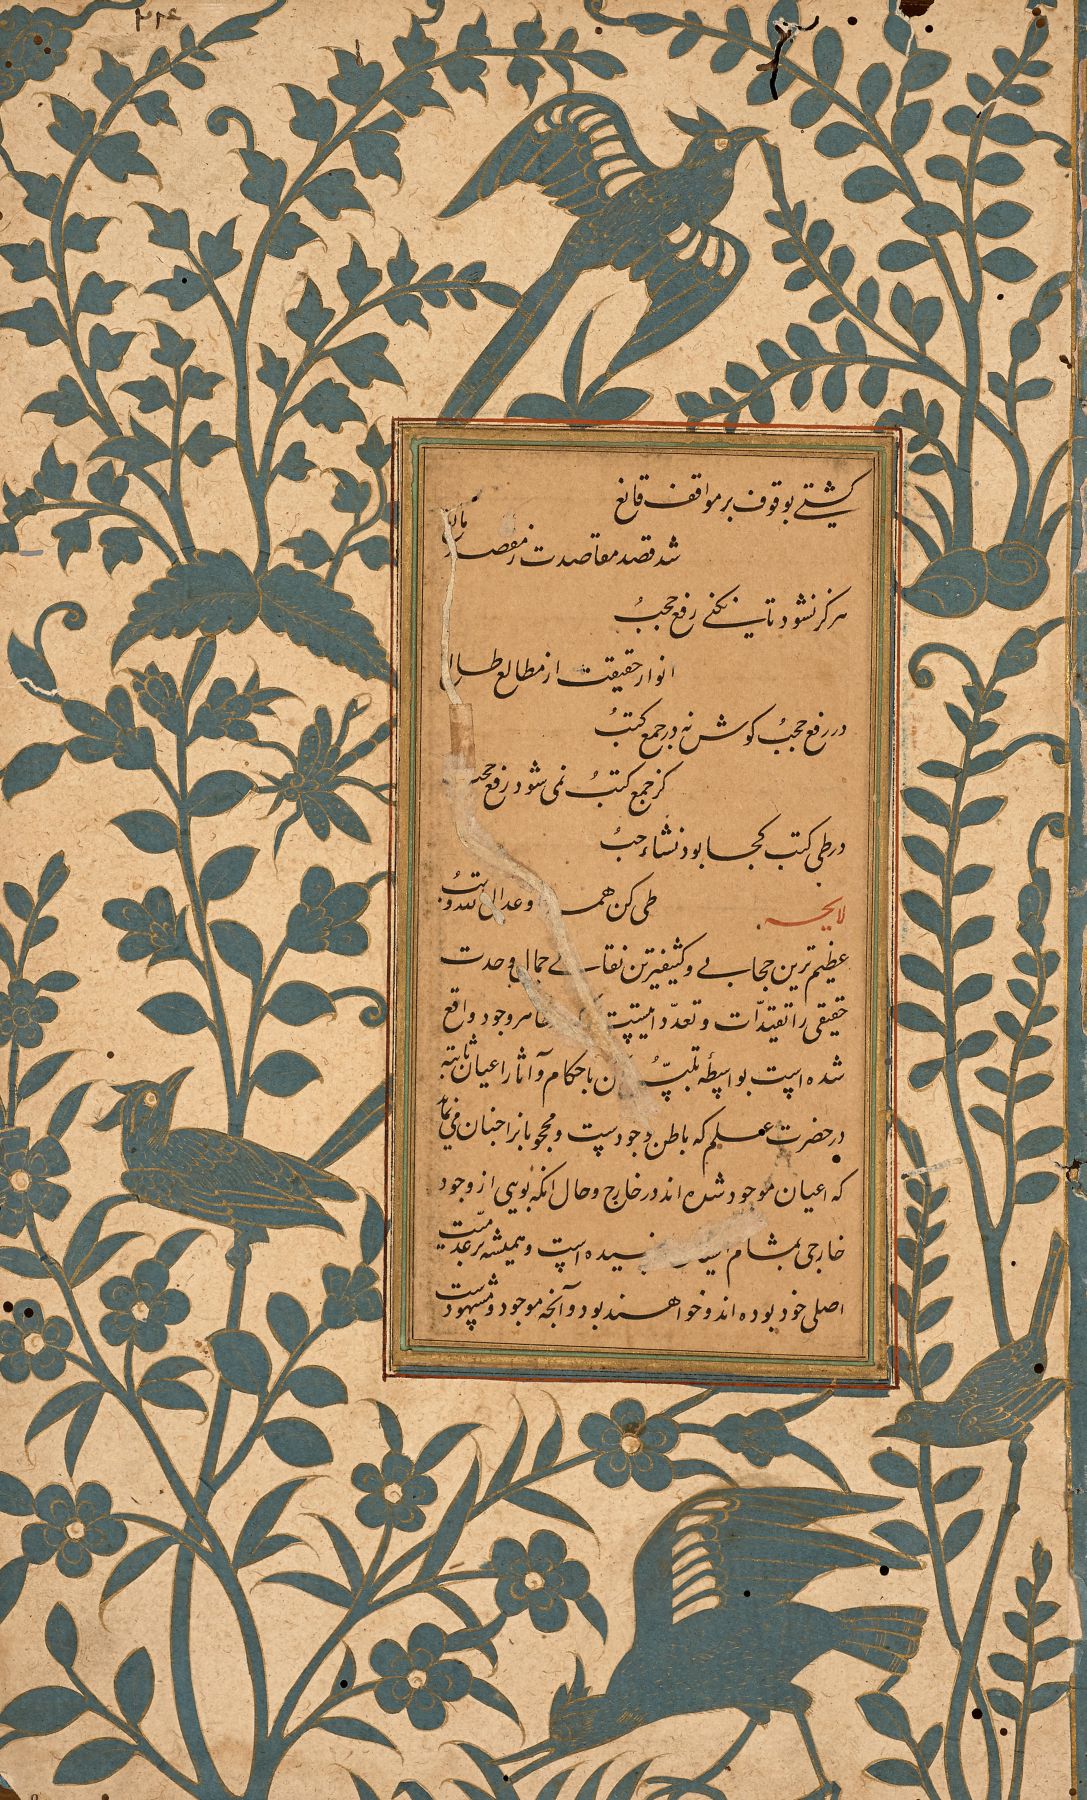 گشتی بوقوف بر مواقف قانع
شد قصد مقاصدت ز مقصد مانع
هرگز نشود تا نکنی رفع حجب
انوار حقیقت از مطالع طالع
در رفع حجب کوش نه در جمع کتب
کز جمع کتب نمی شود رفع حجب
در طی کتب کجا بود نشاء حب
طی کن همه وعد الی الله وتب
لایحه
عظیم ترین حجابی و کثیفترین نقابی جمال وحدت
حقیقی را تقیدات و تعددا تیست وجود واقع
شده است بواسطه تلبس آن باحکام و آثار اعیان ثابته
در حضرت علم که باطن وجودست و محجوبانرا چنان می نماید
که اعیان موجود شده اند در خارج و حال آنکه بویی از وجود
خارجی بمشام نرسیده است و همیشه بر عدمیت
اصلی خود بوده اند و خواهند بود و آنچه موجود و مشهودست